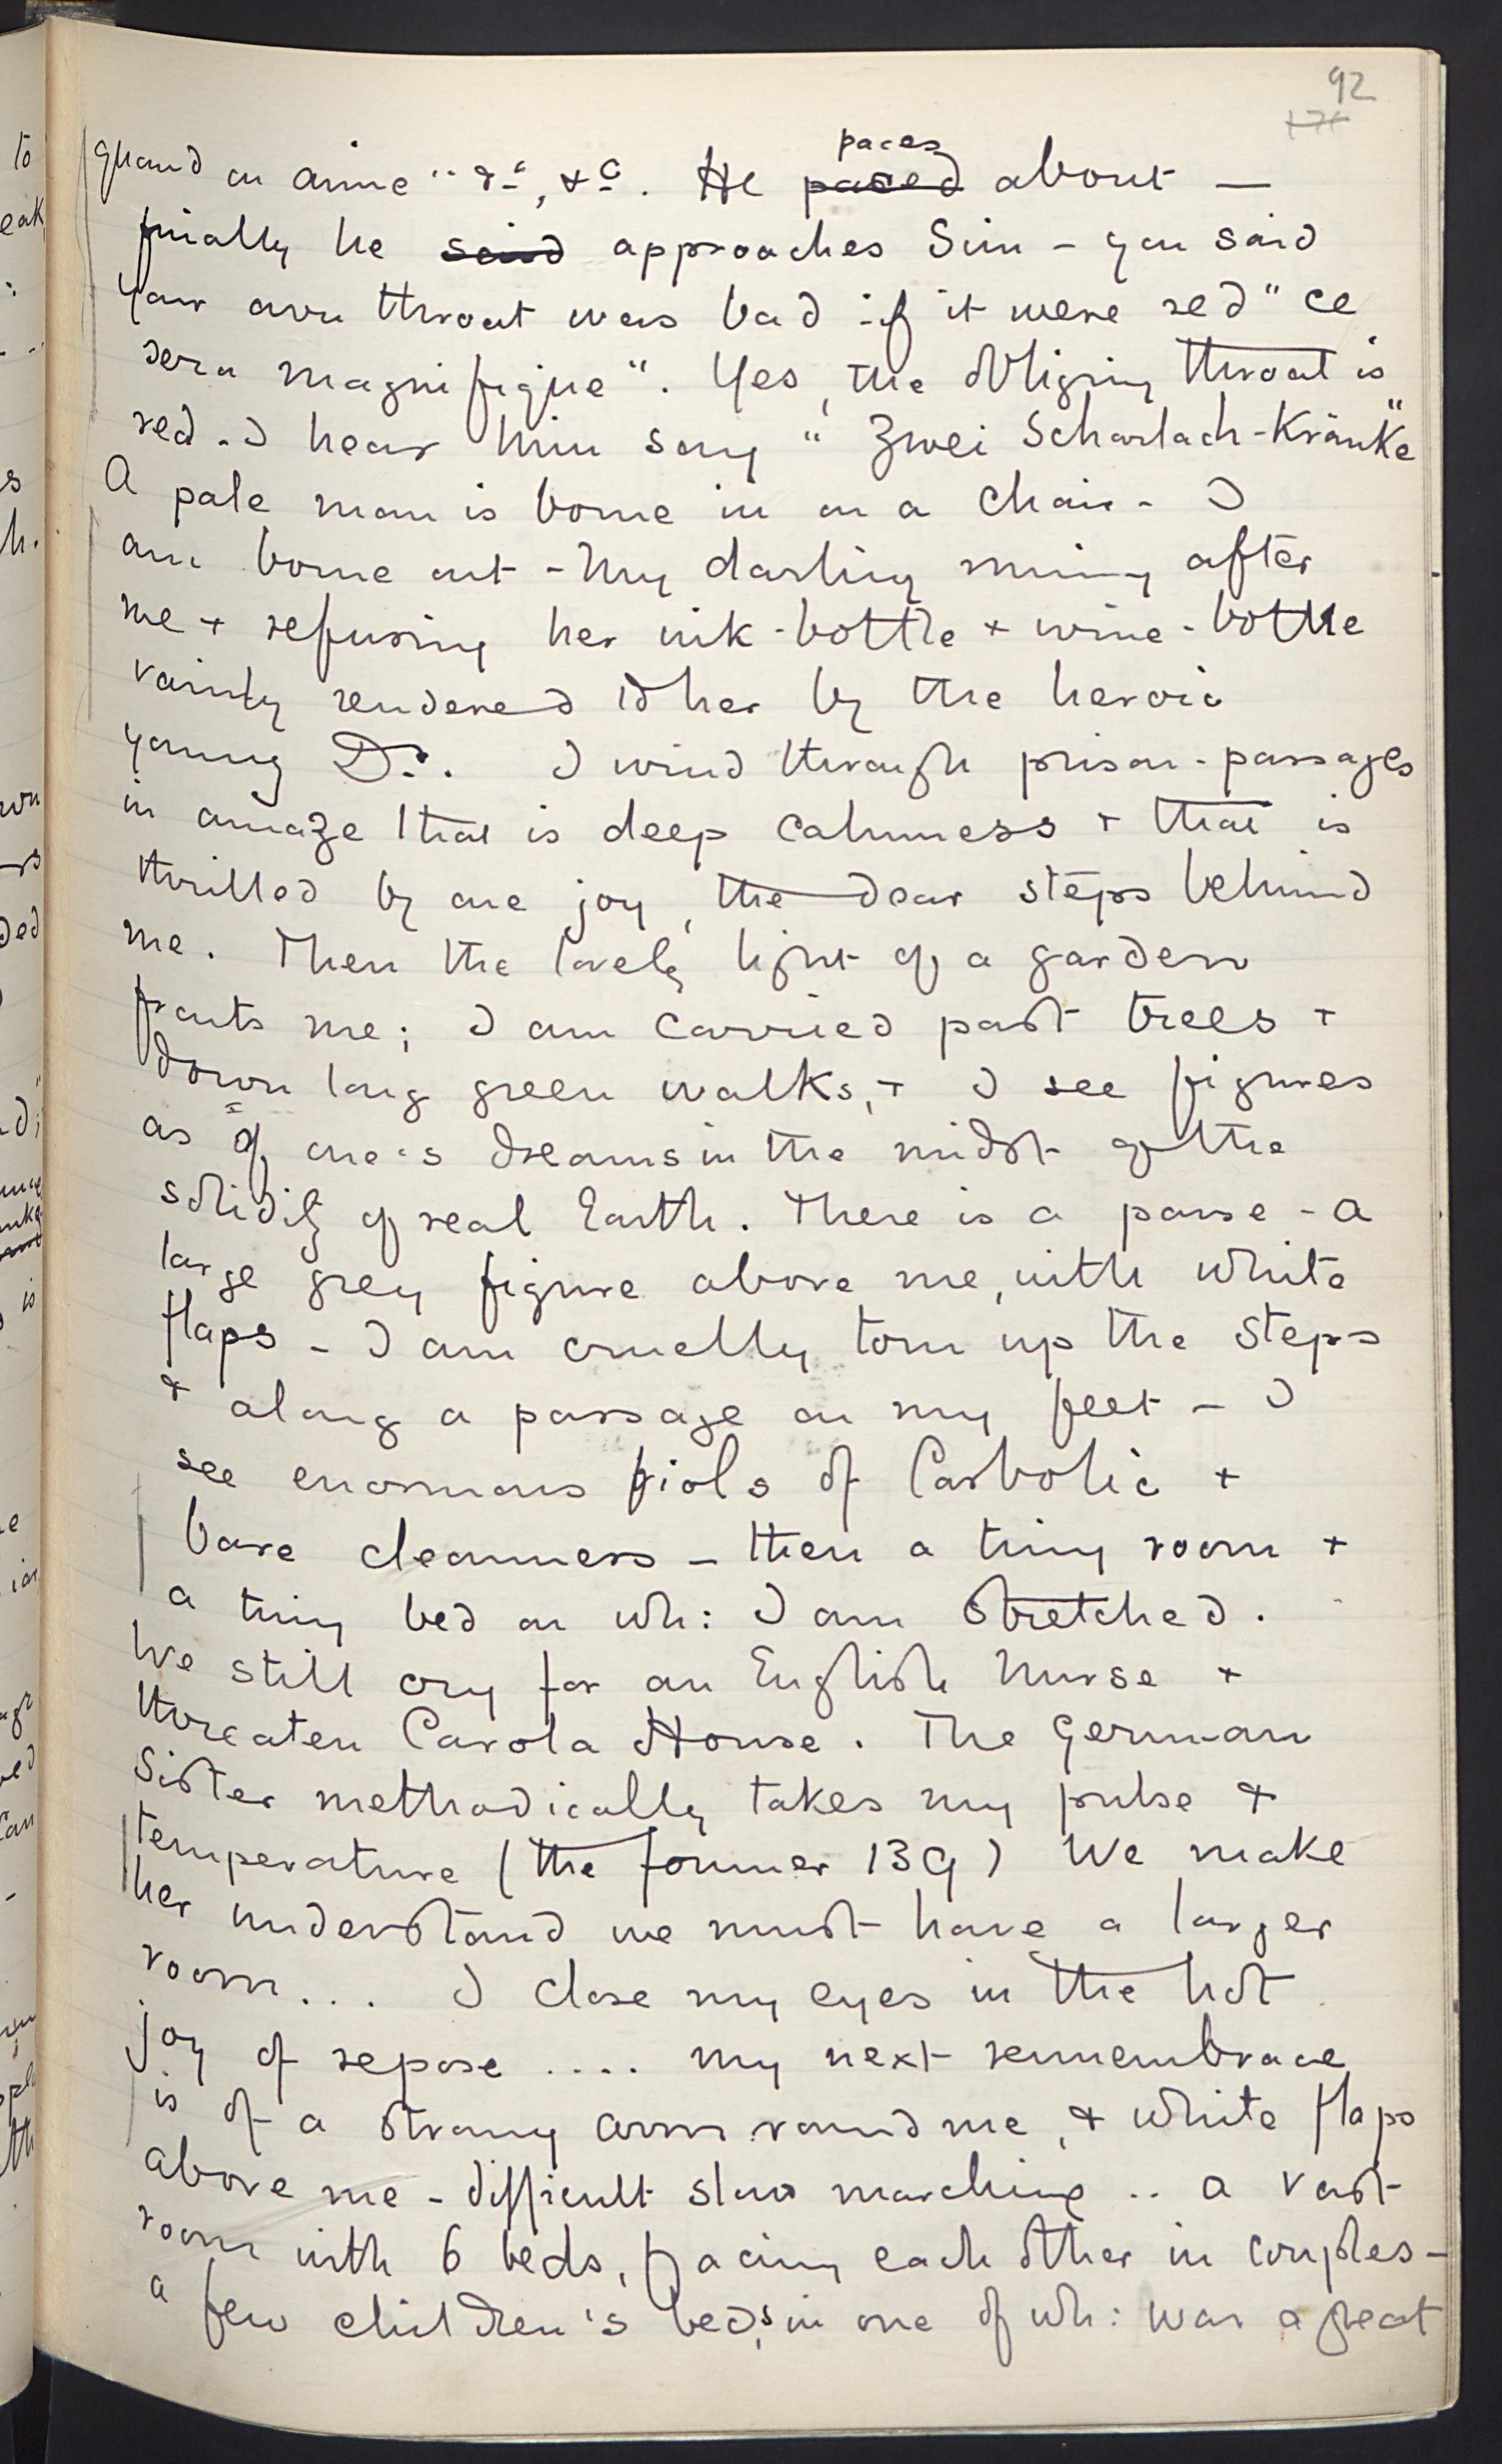 92
171
quand on aime" &c, &c. He paced paces about —
finally he said approaches Sim - you said
your own throat was bad - if it were red "ce
sera magnifique". Yes, the obliging throat is
red - I hear him say "Zwei Scharlach-Kränke"
A pale man is borne in on a chair - I
am borne out - My darling running after
me + refusing her ink-bottle + wine-bottle
vainly rendered to her by the heroic
young Dr. I wind through prison-passages
in amaze that is deep calmness + that is
thrilled by one joy, the dear steps behind
me. Then the lovely light of a garden
fronts me; I am carried past trees +
down long green walks, + I see figures
as of one's dreams in the midst of the
solidity of real Earth. There is a pause - a
large grey figure above me, with white
flaps - I am cruelly torn up the steps
& along a passage on my feet - I
see enormous fiols of Carbolic +
bare cleanness - then a tiny room +
a tiny bed on wh: I am stretched.
We still cry for an English Nurse +
threaten Carola House. The German
Sister methodically takes my pulse &
temperature (the former 139) We make
her understand we must have a larger
room... I close my eyes in the hot
joy of repose .... my next remembrance
is of a strong arm round me, & white flaps
above me - difficult slow marching .. a vast
room with 6 beds, facing each other in couples -
a few children's beds, in one of wh: was a great